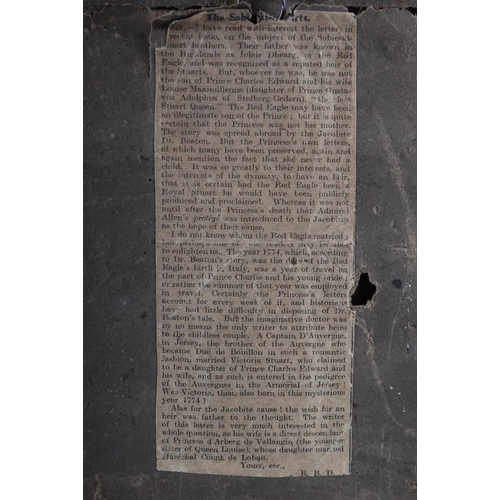 The Sobieski Stuarts.
Sir,—I have read with interest the letter, in
a recent issue, on the subject of the Sobieski
Stuart brothers. Their father was known in
the Highlands as Iolair Dhearg, or the Red
Eagle, and was recognised as a reputed heir of
the Stuarts. But, whoever he was, he was not
the son of Prince Charles Edward and his wife
Louise Maximilienne (daughter of Prince Gusta-
vus Adolphus of Stolberg-Gedern), "the last
Stuart Queen." The Red Eagle may have been
an illegitimate son of the Prince; but it is quite
certain that the Princess was not his mother.
The story was spread abroad by the Jacobite
Dr. Beaton. But the Princess's own letters,
of which many have been preserved, again and
again mention the fact that she never had a
child. It was so greatly to their interests, and
the interests of the dynasty, to have an heir,
that it is certain had the Red Eagle been a
Royal Stuart he would have been publicly
produced and proclaimed. Whereas it was not
until after the Princess's death that Admiral
Allen's protégé was introduced to the Jacobites
as the hope of their cause.
I do not know whom the Red Eagle married;
but perhaps one of your readers may be able
to enlighten us. The year 1774, which, according
to Dr. Beaton's story, was the date of the Red
Eagle's birth in Italy, was a year of travel on
the part of Prince Charlie and his young bride;
or rather the summer of that year was employed
in travel. Certainly the Princess's letters
account for every week of it, and historians
have had little difficulty in disposing of Dr.
Beaton's tale. But the imaginative doctor was
by no means the only writer to attribute heirs
to the childless couple. A Captain D'Auvergne,
in Jersey, the brother of the Auvergne who
became Duc de Bouillon in such a romantic
fashion, married Victoria Stuart, who claimed
to be a daughter of Prince Charles Edward and
his wife, and as such is entered in the pedigree
of the Auvergnes in the Armorial of Jersey!
Was Victoria, then, also born in this mysterious
year 1774?
Alas for the Jacobite cause! the wish for an
heir was father to the thought. The writer
of this letter is very much interested in the
whole question, as his wife is a direct descendant
of Princess d'Arberg de Vallangin (the younger
sister of Queen Louise), whose daughter married
Maréchal Count de Lobau.
Yours, etc.,
R. R. D.